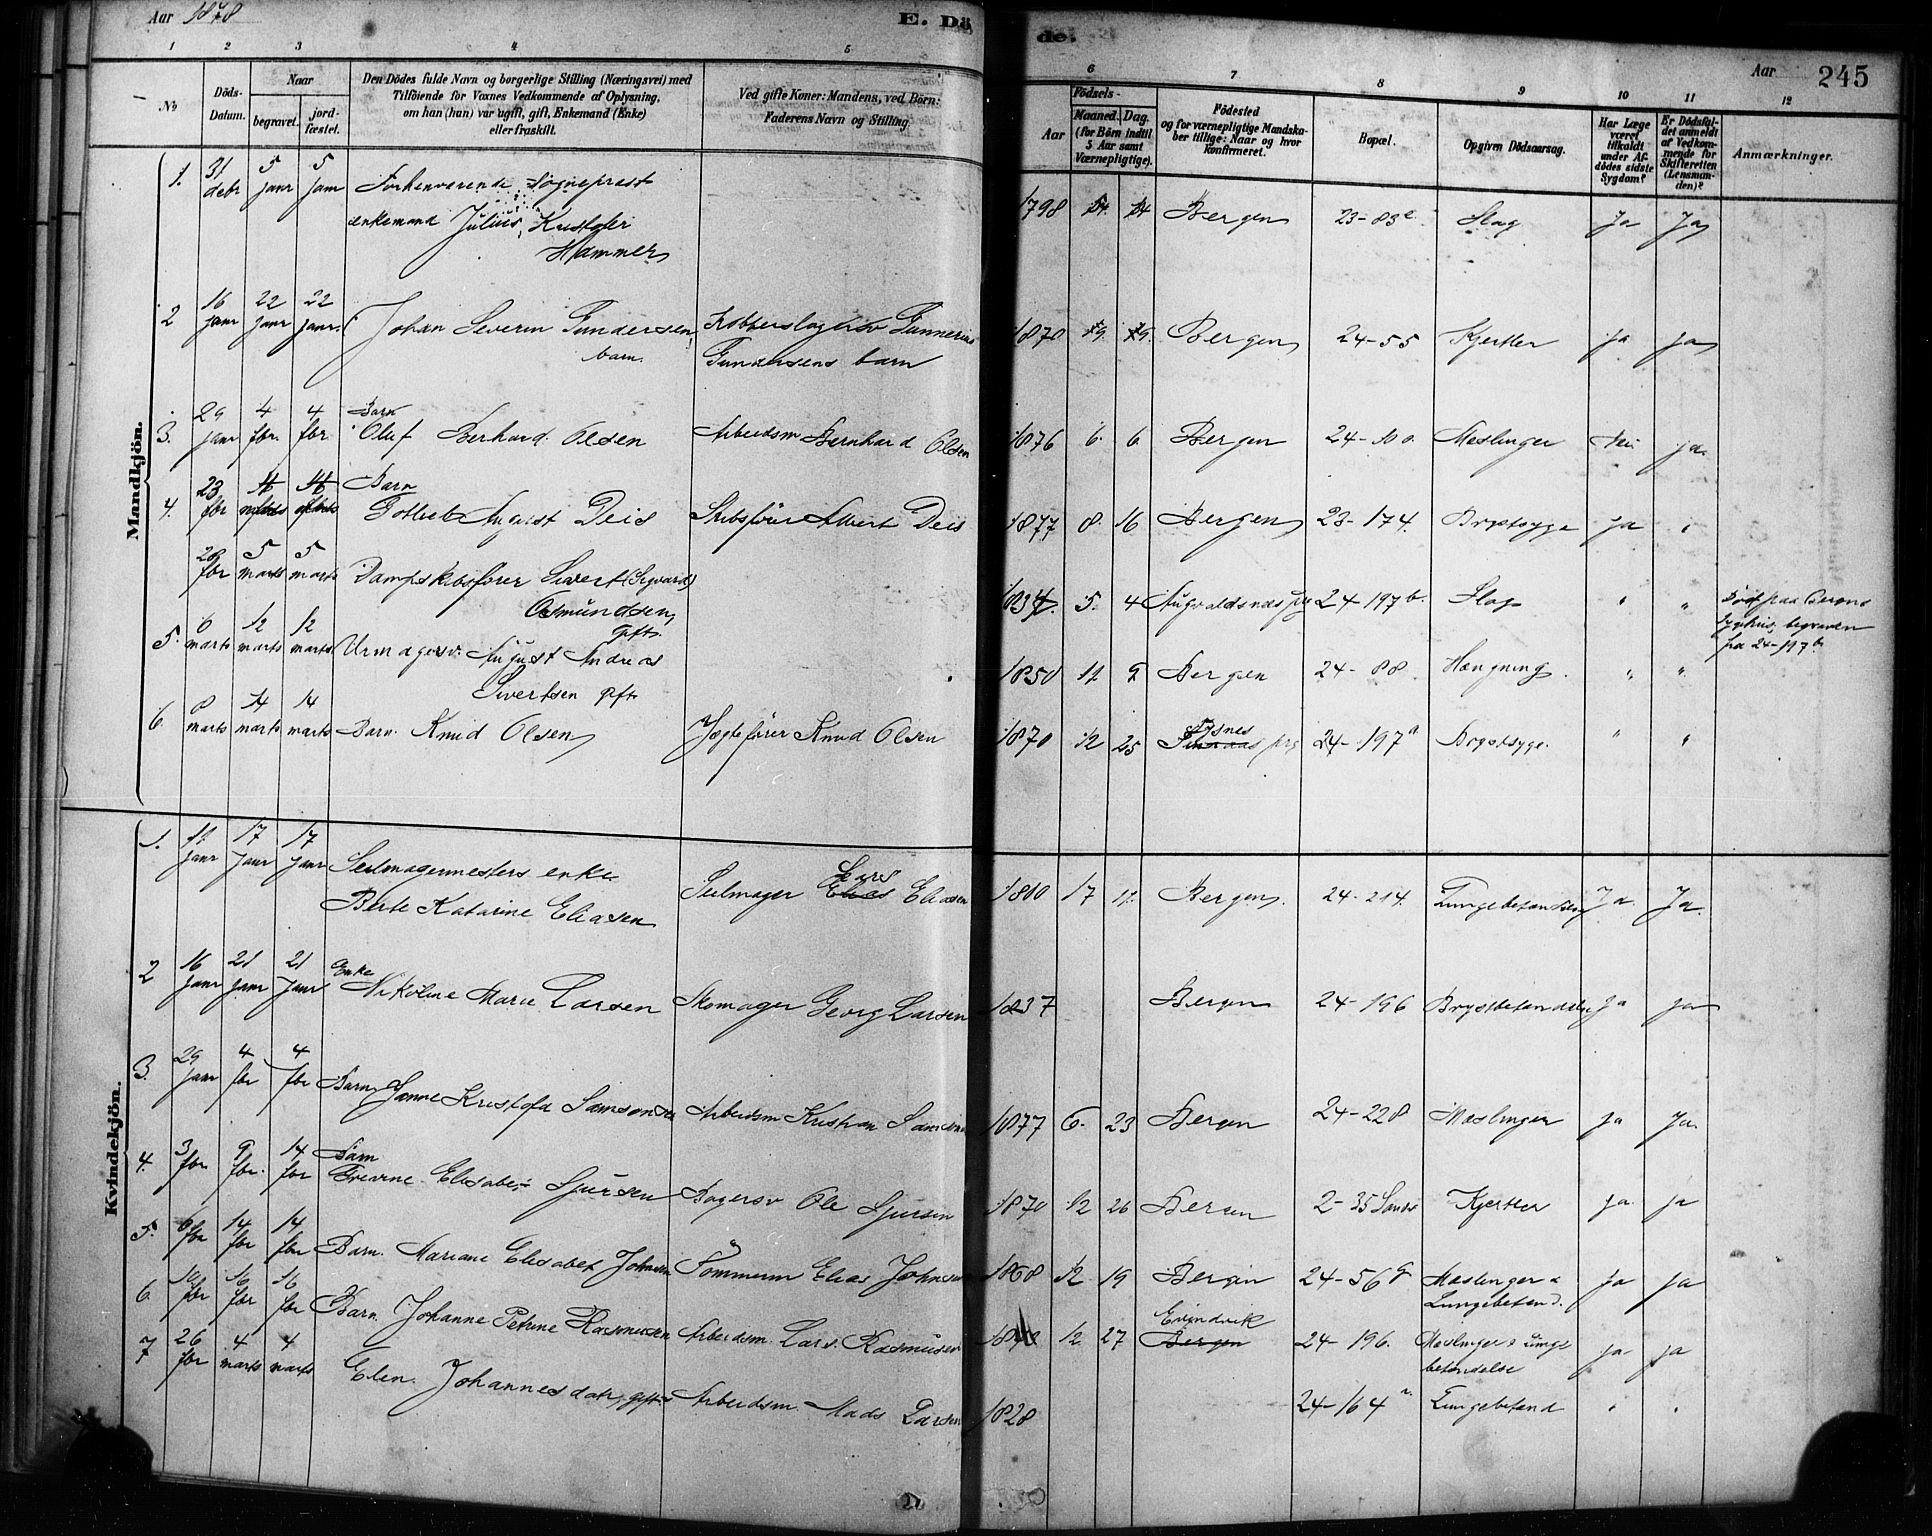 Aar 1878
E. Dö
de.
Aar
245
1 2 3 4 5
6 7 8 9 10 11 12
No
Döds-
Datum.
Naar
begravet.
jord-
fæstet.
Den Dödes fulde Navn og borgerlige Stilling (Næringsvei) med
Tilföiende for Voxnes Vedkommende af Oplysning,
om han (hun) var ugift, gift, Enkemand (Enke)
eller fraskilt.
Ved gifte Koner: Mandens, ved Börn:
Faderens Navn og Stilling
Födsels-
Aar
Maaned. Dag.
(for Börn indtil
5 Aar samt
Værnepligtige).
Födested
og for værnepligtige Mandska-
ber tillige: Naar og hvor
konfirmeret.
Bopæl.
Opgiven Dödsaarsag.
Har Læge
været
tilkaldt
under Af-
dödes sidste
Sygdom?
Er Dödsfal-
det anmeldt
af Vedkom-
mende for
Skifteretten
(Lensman-
den)?
Anmærkninger.
Mandkjön.
1. 31 debr 5 janr 5 janr Forhenværende Sogneprest
enkemand Julius Kristofer
Hammer
1798 Bergen 23-83e Slag Ja Ja
2 16 janr 22 janr 22 janr. Johan Severin Gundersen Kobberslagersv Gunnerius
barn. Gundersens barn
1870 Bergen 24-55 Kjertler ja ja
3. 29 janr 4 fbr. 4 fbr Barn
Oluf Berhard Olsen Arbeidsm Bernhard Olsen 1876 6. 6 Bergen 24- Meslinger Nei ja.
4. 23 fbr Barn
Gotlieb August Deis Skibsfører Albert Deis 1877 8. 16 Bergen 23-174. Brystsyge ja "
28 fbr 5 marts 5 marts Dampskibsfører Sivert (Sigvard)
Asmundsen
gift.
5. 4 Augvaldsnæs prg 24-197b. Slag " " Død paa Børns
Sygehus, begraven
fra 24-197b.
5. 6 marts 12 marts 12 marts Urmagersv. August Andreas
Sivertsen gift
1850 11. 9 Bergen 24-88 Hængning. " "
6. 8 marts 14 marts 14 marts Barn. Knud Olsen Jægtefører Knud Olsen 1870 12 25 Tysnes prg 24-197a Brystsyge. " "
Kvindekjön.
1. 11. janr 17 janr 17 janr Seilmagermesters enke
Berte Katarine Eliasen Seilmager Elias Lars Eliasen 1800 17 11. Bergen. 24-214. Lungebetændelse Ja. Ja.
2 16 janr 21 janr 21 janr Enke
Nikoline Marie Larsen Skomager Georg Larsen 1837 Bergen 24-196 Brystbetændelse ja ja
3. 29 janr 4 fbr 4 fbr Barn Hanne Kristofa Samsonsen Arbeidsm Kristian Samsonsen 1877 6. 23 Bergen 24-228 Mæslinger ja Ja.
4. 3 fbr. 9 fbr. 14 fbr Barn
Trevine Elisabet Sjursen Bagersv Ole Sjursen 1870 12 26 Bergen 2-35 Sandv Kjertler ja ja
5. 6 fbr 14 fbr 14 fbr Barn. Mariane Elisabet Johnsen Tømmerm Elias Johnsen 1868 12. 19 Bergen 24-56 Mæslinger &
Lungebetænd. ja ja
6. 10 fbr 16 fbr 16 fbr Barn Johanne Petrine Rasmusen Arbeidsm. Lars Rasmusen 12 27 Evindvik
Bergen 24-196. Mæslinger & Lunge
betændelse ja ja
7 26 fbr 4 marts 4 marts Elen Johannesdatr, gift Arbeidsm Mads Larsen 1828 24-164 Lungebetænd " "